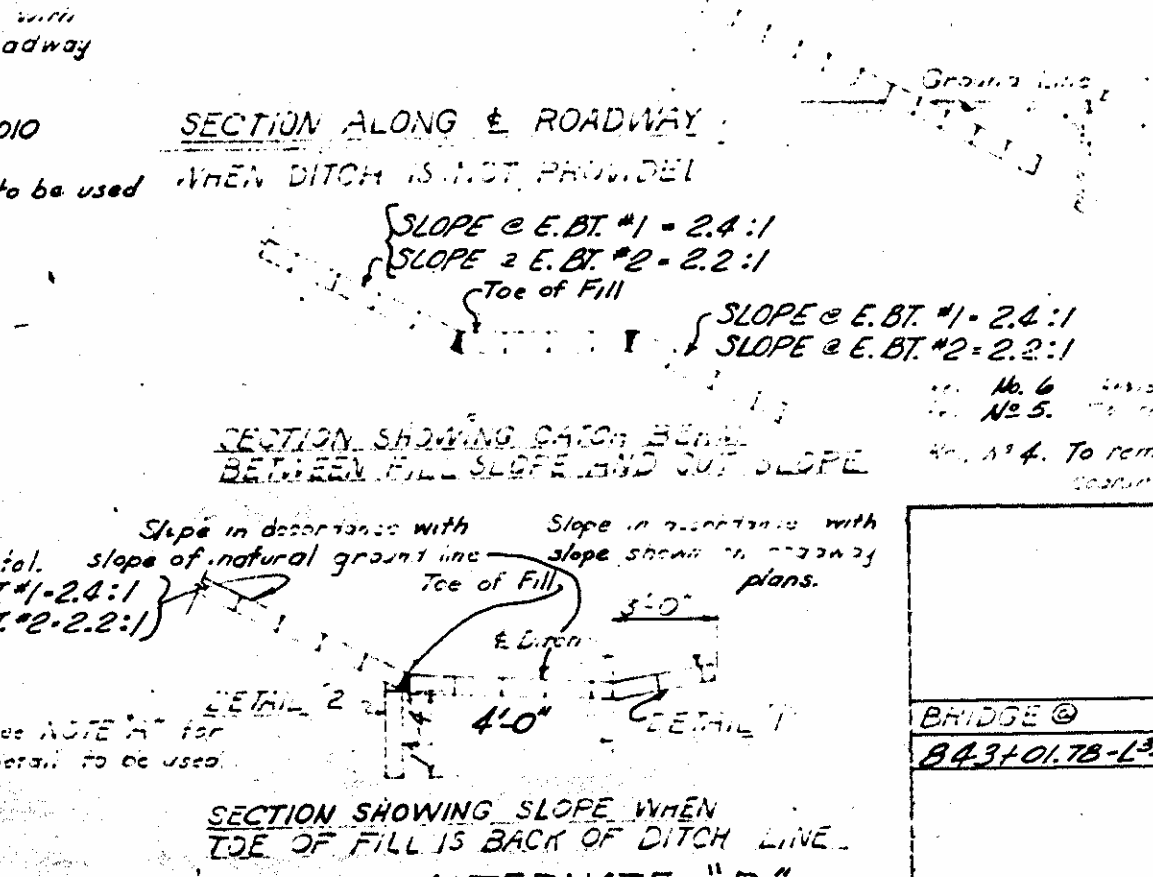 with
adway
Ground Line
010
SECTION ALONG ℄ ROADWAY
to be used
WHEN DITCH IS NOT PROVIDED
SLOPE @ E.BT. #1 = 2.4:1
SLOPE @ E.BT. #2 = 2.2:1
Toe of Fill
SLOPE @ E.BT. #1 = 2.4:1
SLOPE @ E.BT. #2 = 2.2:1
No. 6
Nº 5.
Nº 4. To rem
SECTION SHOWING CATCH BERM
BETWEEN FILL SLOPE AND CUT SLOPE
Slope in accordance with
slope of natural ground line
Slope in accordance with
slope shown on roadway
plans.
tal.
T. #1=2.4:1
T. #2=2.2:1
Toe of Fill
3'-0"
℄ Ditch
DETAIL 2
4
4'-0"
DETAIL 1
ee NOTE "A" for
detail to be used.
BRIDGE @
843+01.78-L
SECTION SHOWING SLOPE WHEN
TOE OF FILL IS BACK OF DITCH LINE
ALTERNATE "B"